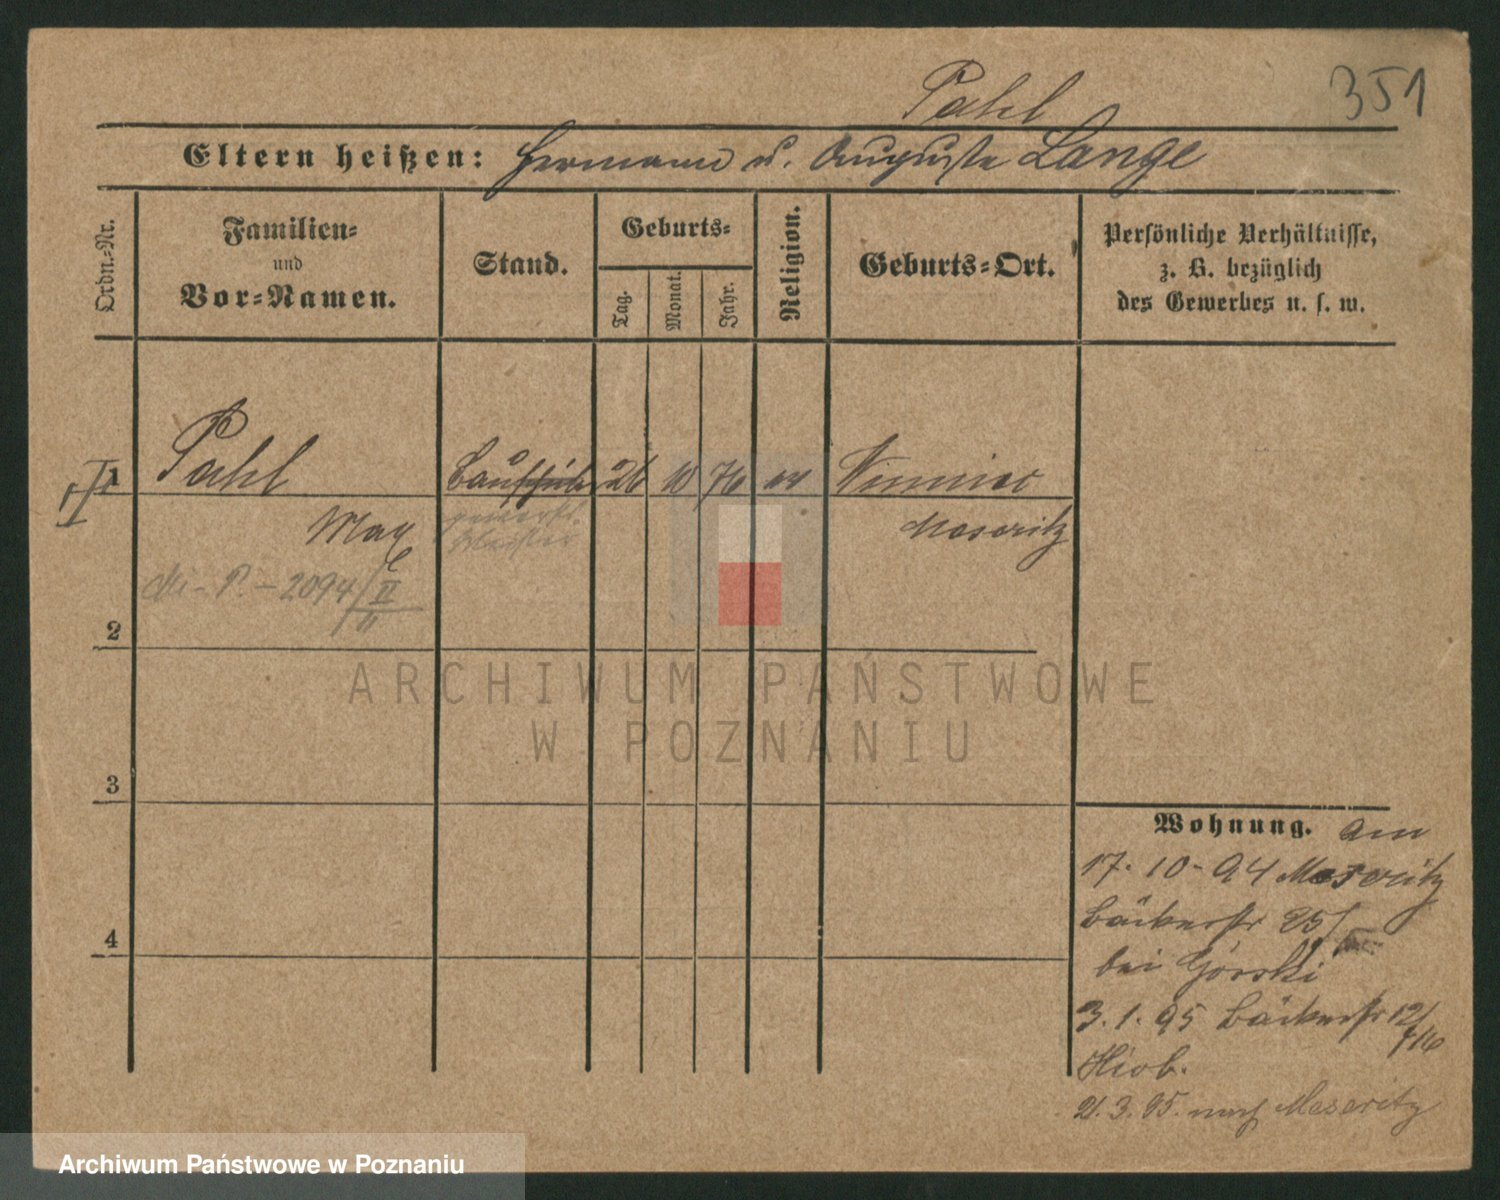 Pahl
351
Eltern heißen: Hermann u. Auguste Lange
Ordn.-Nr.
Familien-
und
Vor-Namen.
Stand.
Geburts-
Tag.
Monat.
Jahr.
Religion.
Geburts-Ort.
Persönliche Verhältnisse,
z. B. bezüglich
des Gewerbes u. s. w.
1
Pahl
26 10 76
Max
Meseritz
2094
II
2
3
4
Wohnung. am
17. 10. 94 Meseritz
Bäckerstr 25/
bei Górski
3. 1. 95 Bäckerstr 12/
Hiob.
21. 3. 95. nach Meseritz
ARCHIWUM PAŃSTWOWE
W POZNANIU
Archiwum Państwowe w Poznaniu